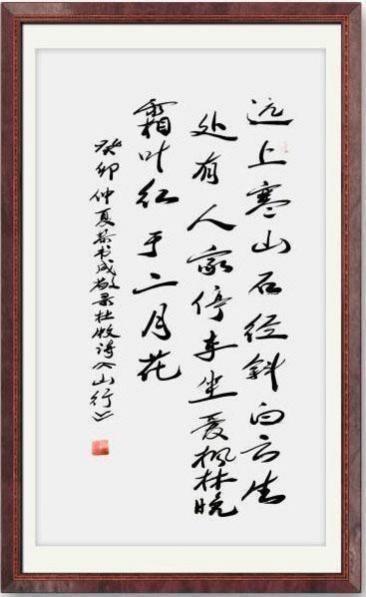 远上寒山石径斜白云生
处有人家停车坐爱枫林晚
霜叶红于二月花
癸卯仲夏蔡书成敬录杜牧诗《山行》